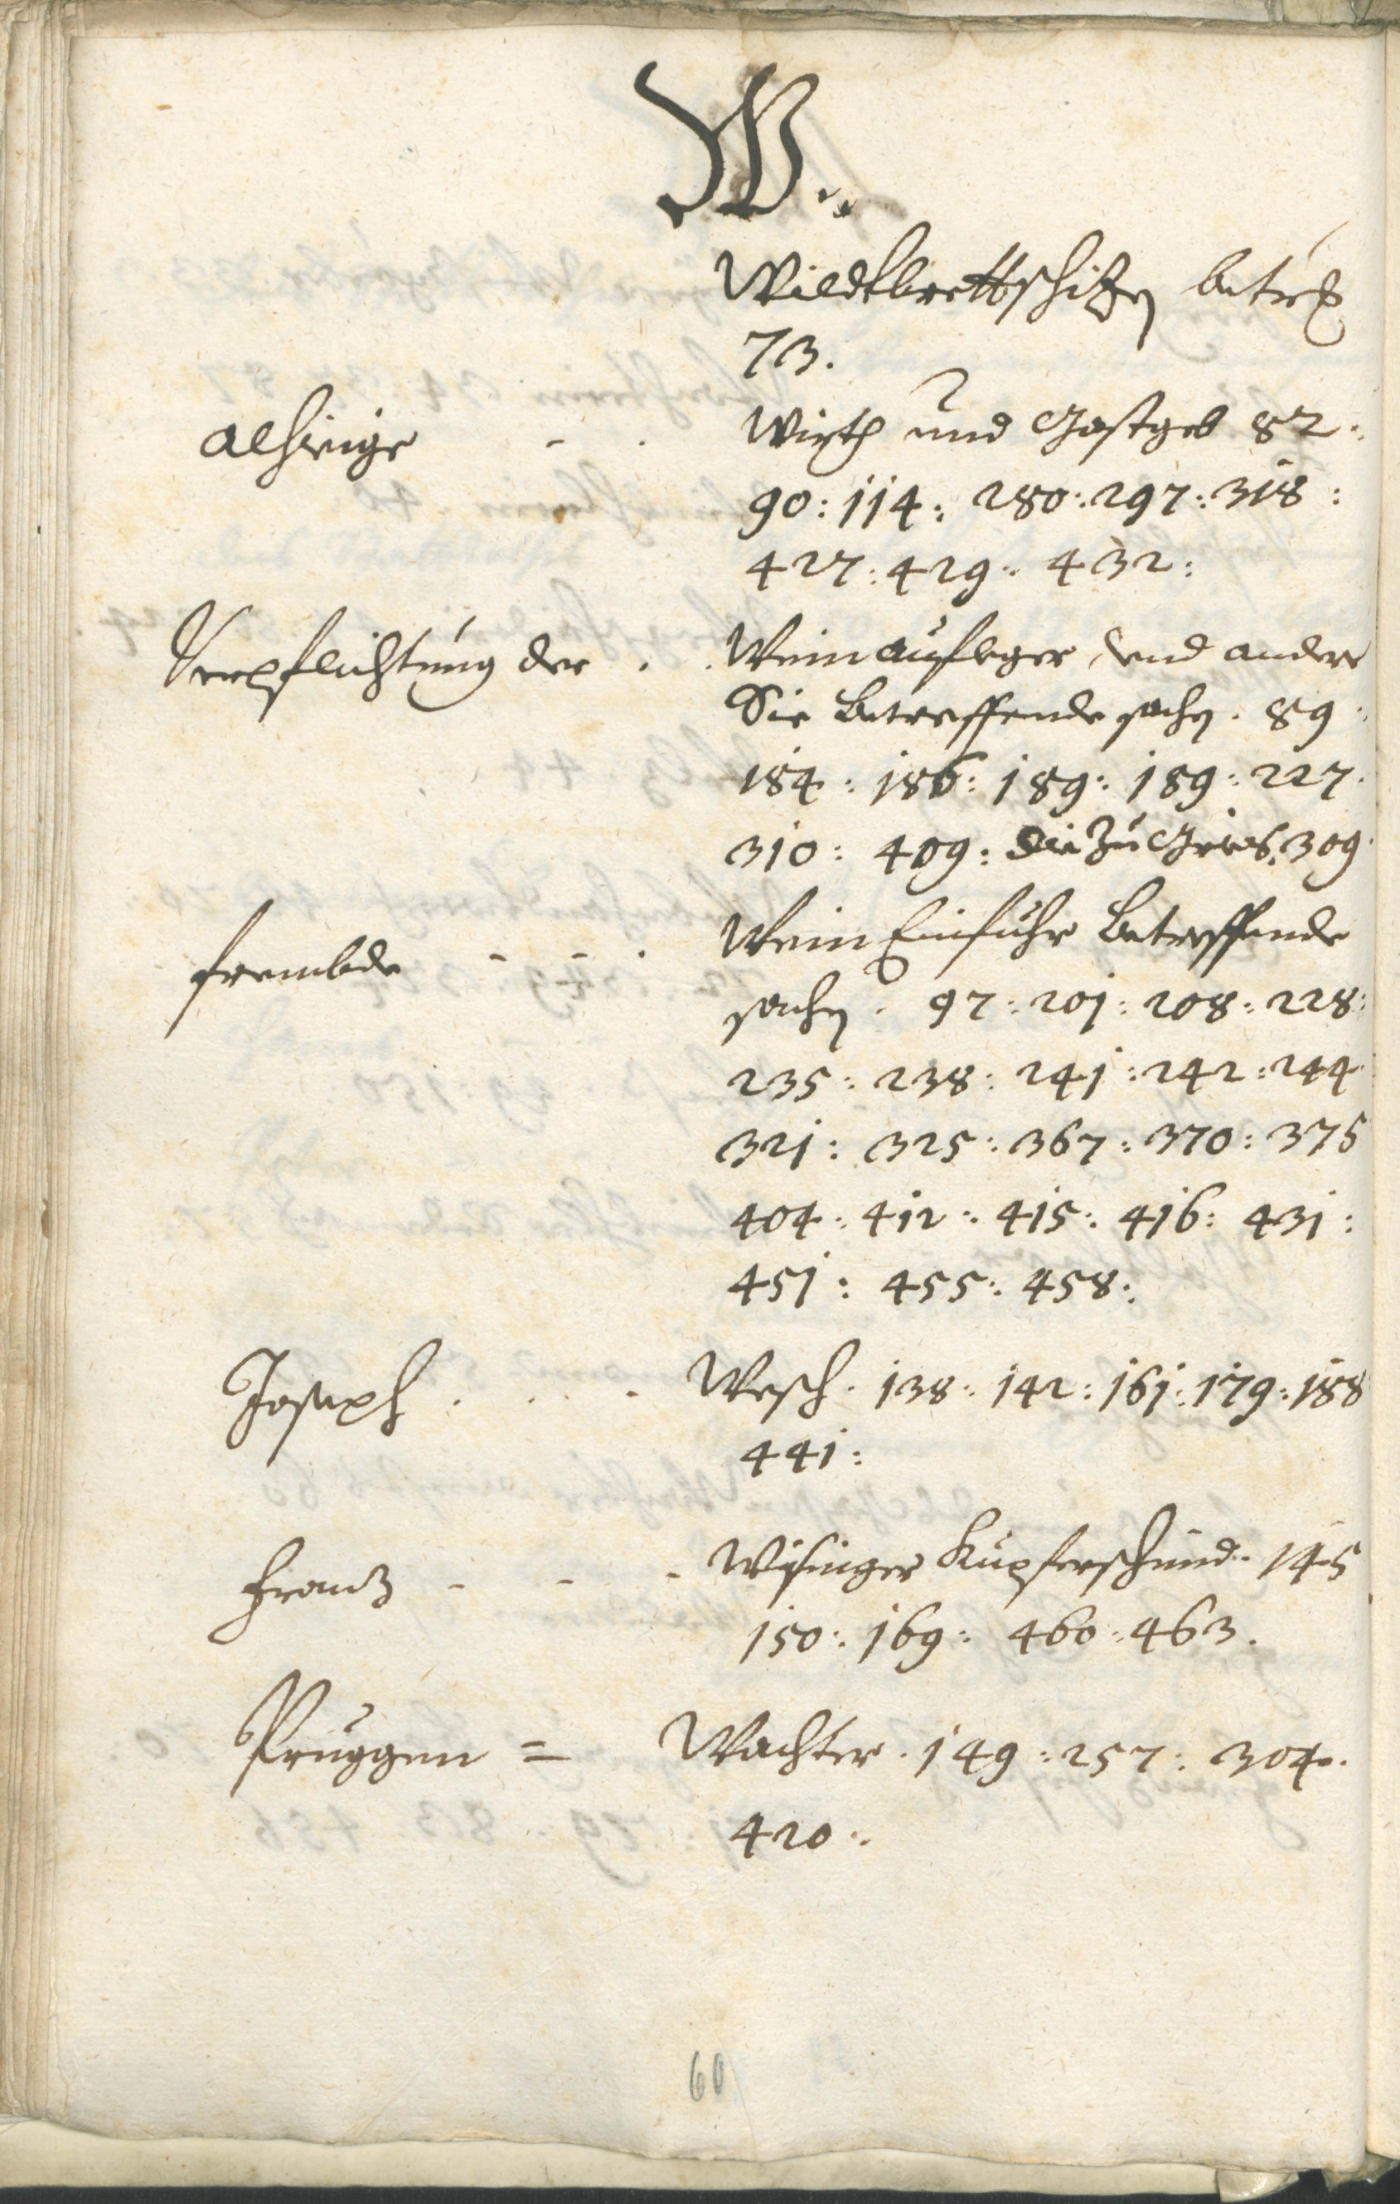 W.
Wildtbrettschizen betref
73.
alhieige - . Wirth und Gastgeb 82.
90: 114: 280: 297: 318:
427: 429: 432:
Verpflichtung der . . Weinaufleger und andere
Sie Betreffende sachen. 89:
184: 186: 189: 189: 227.
310: 409: die zu Gries. 309.
frembde - - . Wein Einfuhr Betreffende
sachen. 97: 201: 208: 228:
235: 238: 241: 242: 244
321: 325: 367: 370: 375
404: 412: 415: 416: 431:
451: 455: 458:
Joseph . . . . Wesch. 138: 142: 161: 179: 188
441:
Franz - - - Wisinger Kupferschmid. 145
150: 169: 460: 463.
Pruggen = Wachter. 149: 257: 304.
420:
60